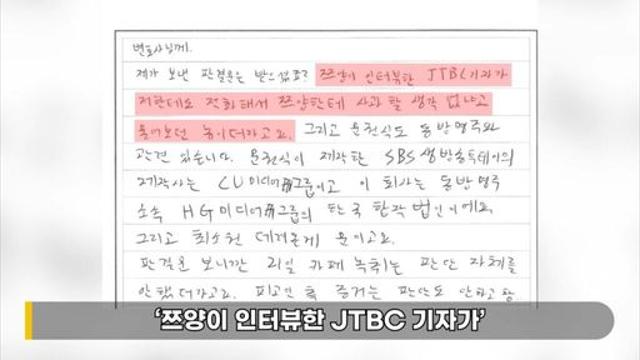 변호사님께.
제가 보낸 판결문은 받으셨죠? 쯔양이 인터뷰한 JTBC 기자가
저한테도 전화해서 쯔양한테 사과할 생각 없냐고
물어보던 놈이더라고요. 그리고 윤권식도 동방명주와
관련 있습니다. 윤권식이 제작한 SBS 생방송투데이의
제작사는 CU미디어그룹이고 이 회사는 동방명주
소속 HG미디어그룹의 한국 합작법인이에요.
그리고 최소원 데려온게 윤이고요.
판결문 보니깐 21일 카페 녹취는 판단 자체를
안 했더라고요. 피고인 측 증거는 판단도 안하고
‘쯔양이 인터뷰한 JTBC 기자가’